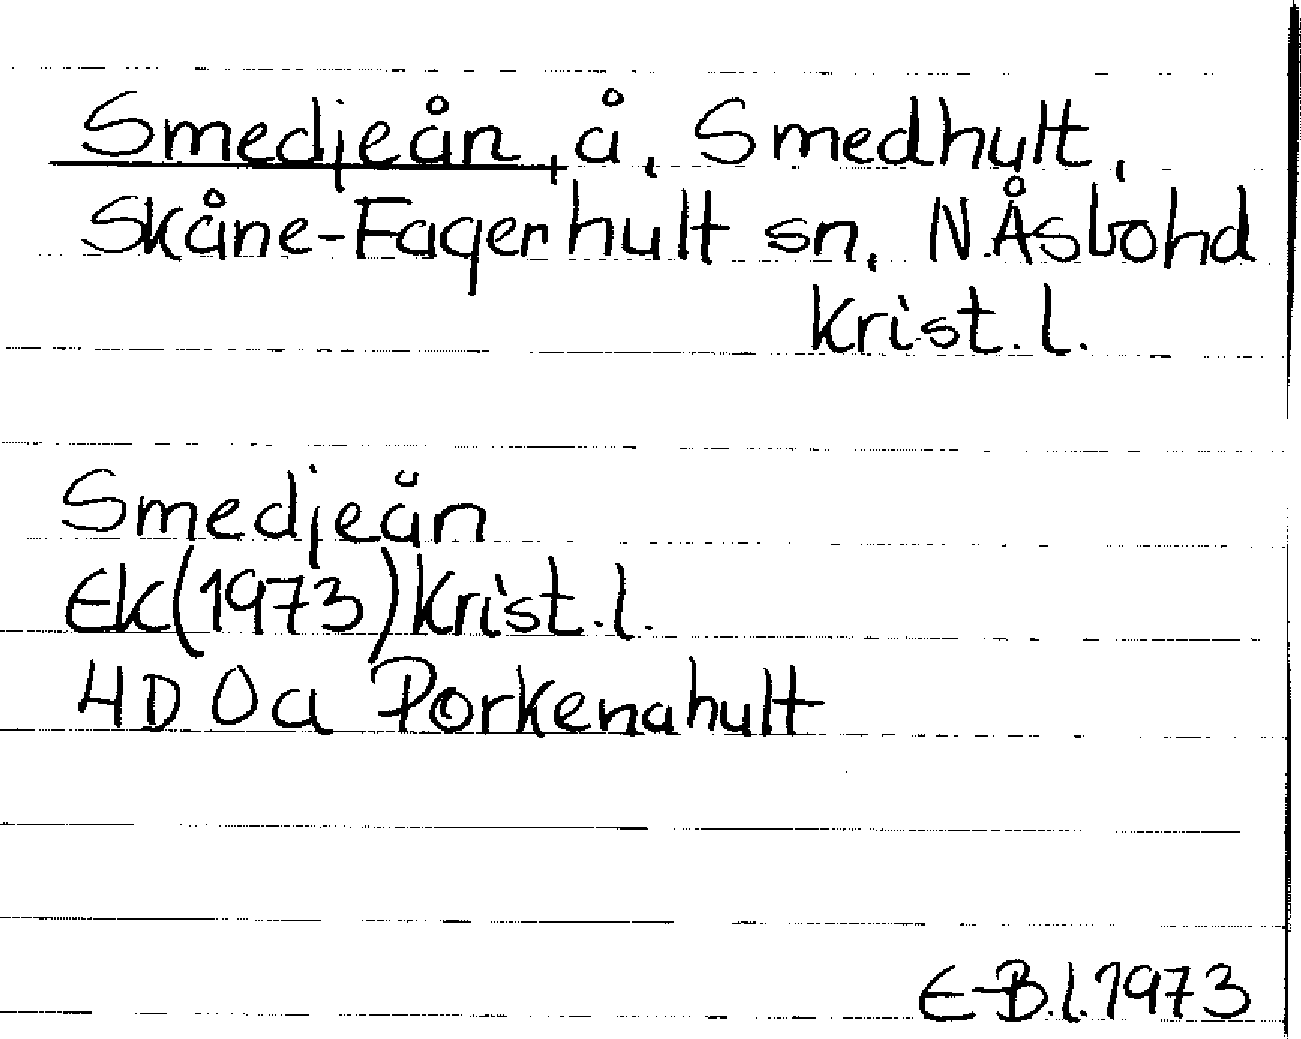 Smedjeån, å, Smedhult,
Skåne-Fagerhult sn, N.Åsbohd
Krist.l.
Smedjeån
Ek(1973)Krist.l.
4D 0a Porkenahult
E-B.l.1973